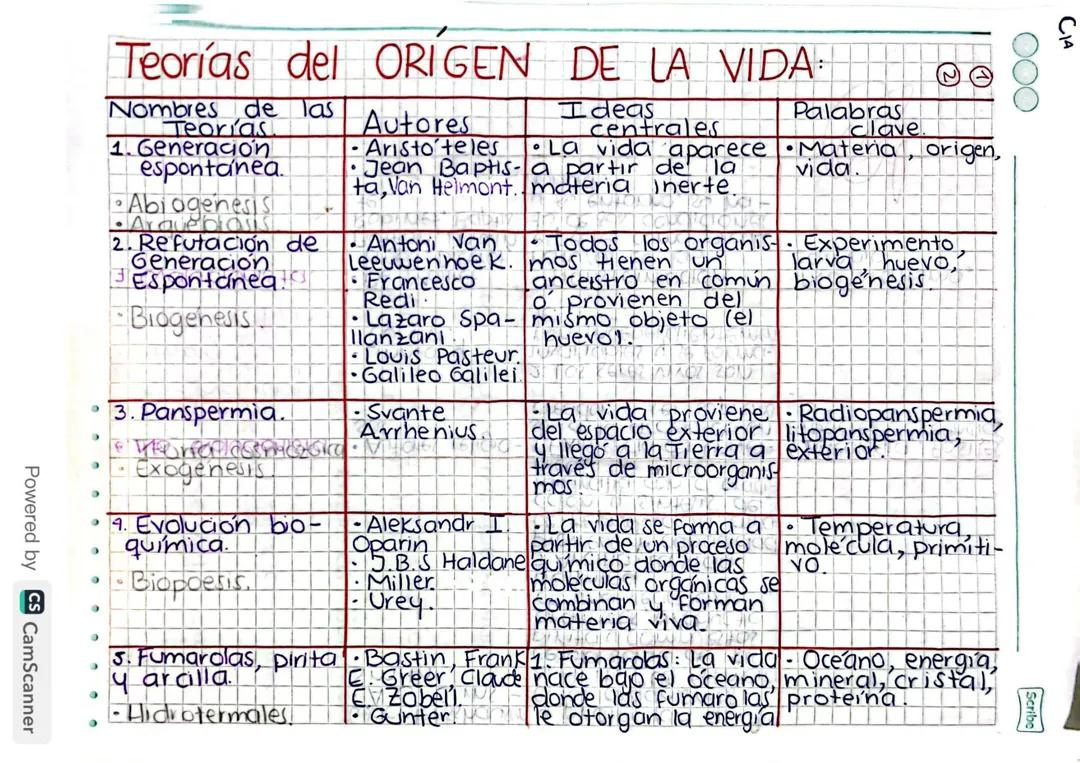 C1A
Teorías del ORIGEN DE LA VIDA:
2 1
Nombres de las
Teorías.
Autores
Ideas
centrales
Palabras
clave.
1. Generación
espontánea.
• Abiogénesis
• Arquebiosis
• Aristóteles
• Jean Baptis-
ta, Van Helmont.
• La vida aparece
a partir de la
materia inerte.
• Materia, origen,
vida.
2. Refutación de
Generación
Espontánea.
• Biogénesis.
• Antoni Van
Leeuwenhoek.
• Francesco
Redi.
• Lazaro Spa-
llanzani.
• Louis Pasteur.
• Galileo Galilei.
• Todos los organis-
mos tienen un
ancestro en común
o provienen del
mismo objeto (el
huevo).
• Experimento,
larva, huevo,
biogénesis.
3. Panspermia.
• Exogénesis
• Svante
Arrhenius.
• La vida proviene
del espacio exterior
y llegó a la Tierra a
través de microorganis-
mos.
• Radiopanspermia,
litopanspermia,
exterior.
4. Evolución bio-
química.
• Biopoesis.
• Aleksandr I.
Oparin
• J.B.S Haldane
• Miller.
• Urey.
• La vida se forma a
partir de un proceso
químico donde las
moléculas orgánicas se
combinan y forman
materia viva.
• Temperatura,
molécula, primiti-
vo.
5. Fumarolas, pirita
y arcilla.
• Hidrotermales.
• Bastin, Frank
E. Greer, Claude
E. Zobell.
• Gunter
1. Fumarolas: La vida
nace bajo el océano,
donde las fumarolas
le otorgan la energía
• Océano, energía,
mineral, cristal,
proteína.
Scribe
Powered by CS CamScanner